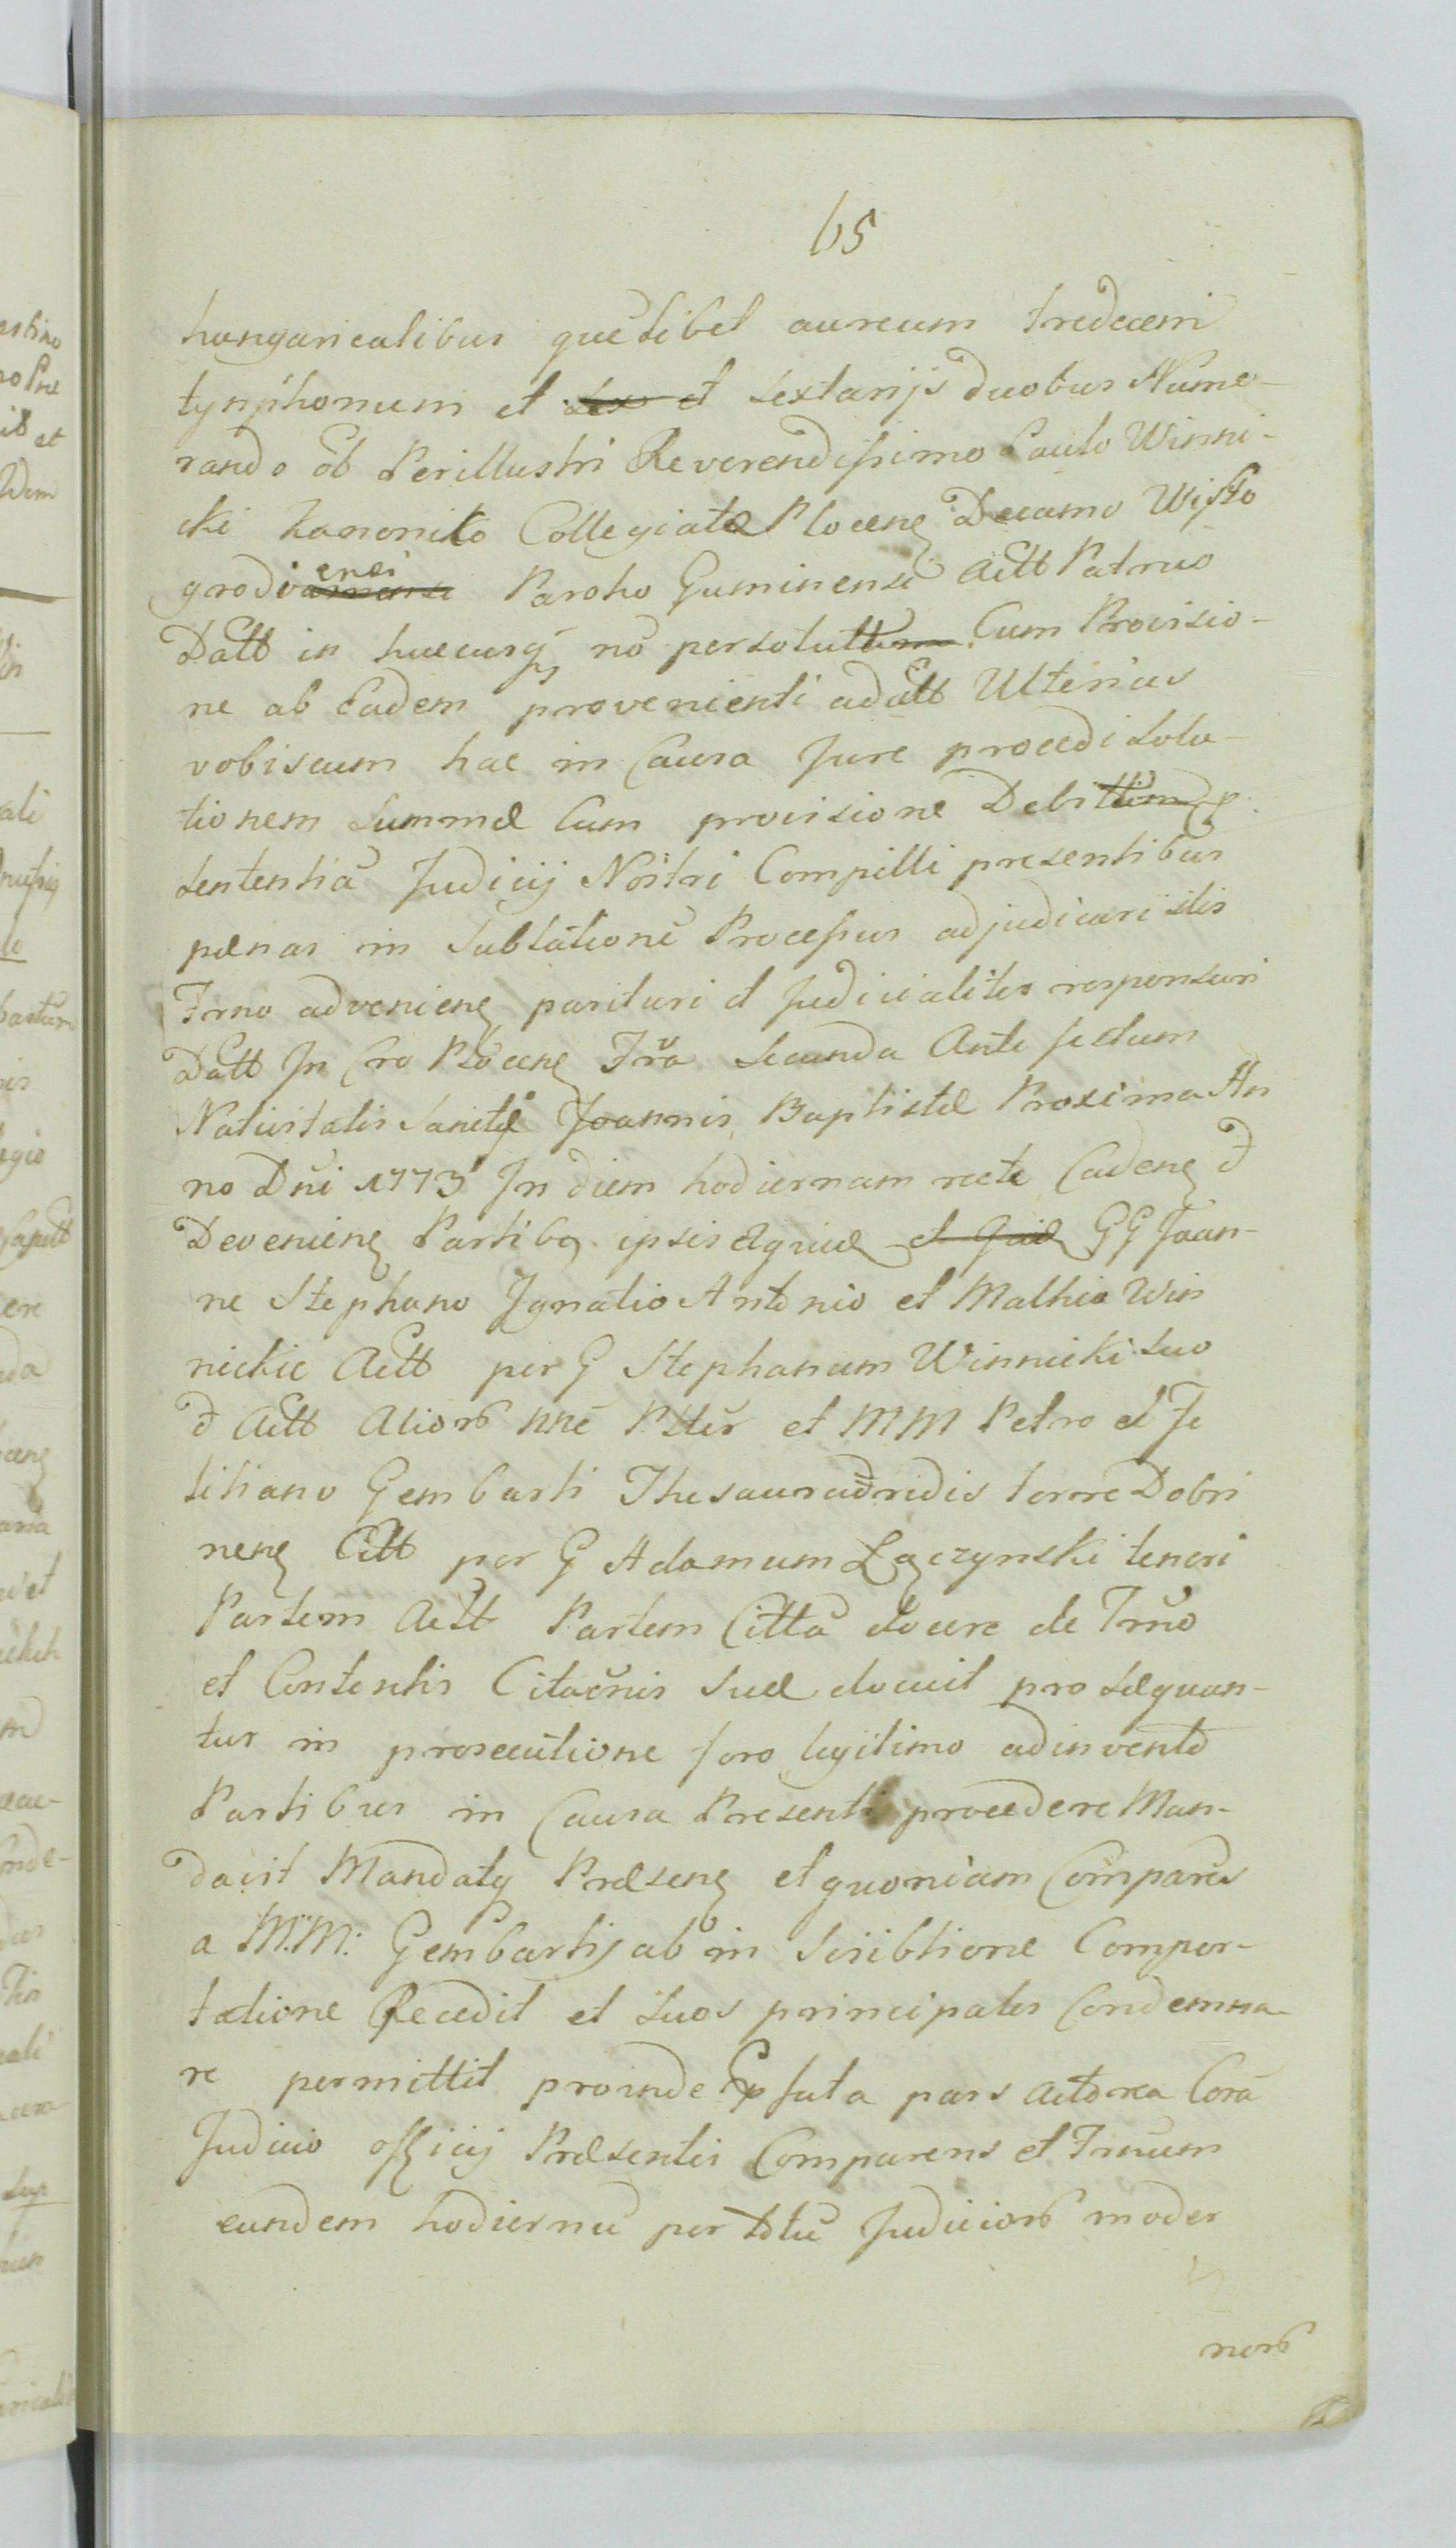 65
hungaricalibus quēlibet aureum tredecem
tynphonum et sex et sextarijs duobus Nume-
rando ob Perillustri Reverendissimo Paulo Winni-
cki Kanoniko Collegiatæ Plocens Decano Wisso
grodi ensi Paroho Guminensi Actt Patruo
Datt in hucusq nō persolutt Cum Provisio-
ne ab Eadem provenienti ad Ultenius
vobiscum hac in Causa Jure procedi solu-
tionem summæ Cum provisione Debitt p
sententiā Judicij Nostri Compelli presentibus
pænas in sublationē Processus adjudicari sitis
Trno adveniens parituri et Judicialiter responsuri
Datt In Cro Plocens Fra Secunda Ante festum
Nativitatis Sancti Joannis Baptistæ Proxima An
no Dni 1773 In diem hodiernam recte Cadens d
Deveniens Partibq ipsis et GG Joan-
ne Stephano Ignatio Antonio et Mathia Win
nickie Actt per G Stephanum Winnicki suo
d Actt Alior nne Ptter et MM Petro et Fe
litiano Gembarti Thesauradridis terre Dobri
nens Citt per G Adamum Łączynski teneri
Partem Actt Partem Cittā docere de Trno
et Contentis Citaonis suæ docuit prosæquan-
tur in prosecutione foro legitimo adinvento
Partibus in Causa Presenti procedere Man-
davit Mandatq Præsens et quoniam Comparēs
a M:M: Gembartis ab in scribtione Compor-
tatione Recedit et suos principales Condemna-
re permittit proinde Exfata pars actorea Corā
Judicio officij Præsentis Comparens et Trnum
eundem hodiernū per totū Judicior moder
nor